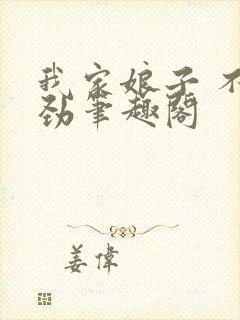 我家娘子 不
劲笔趣阁
姜伟